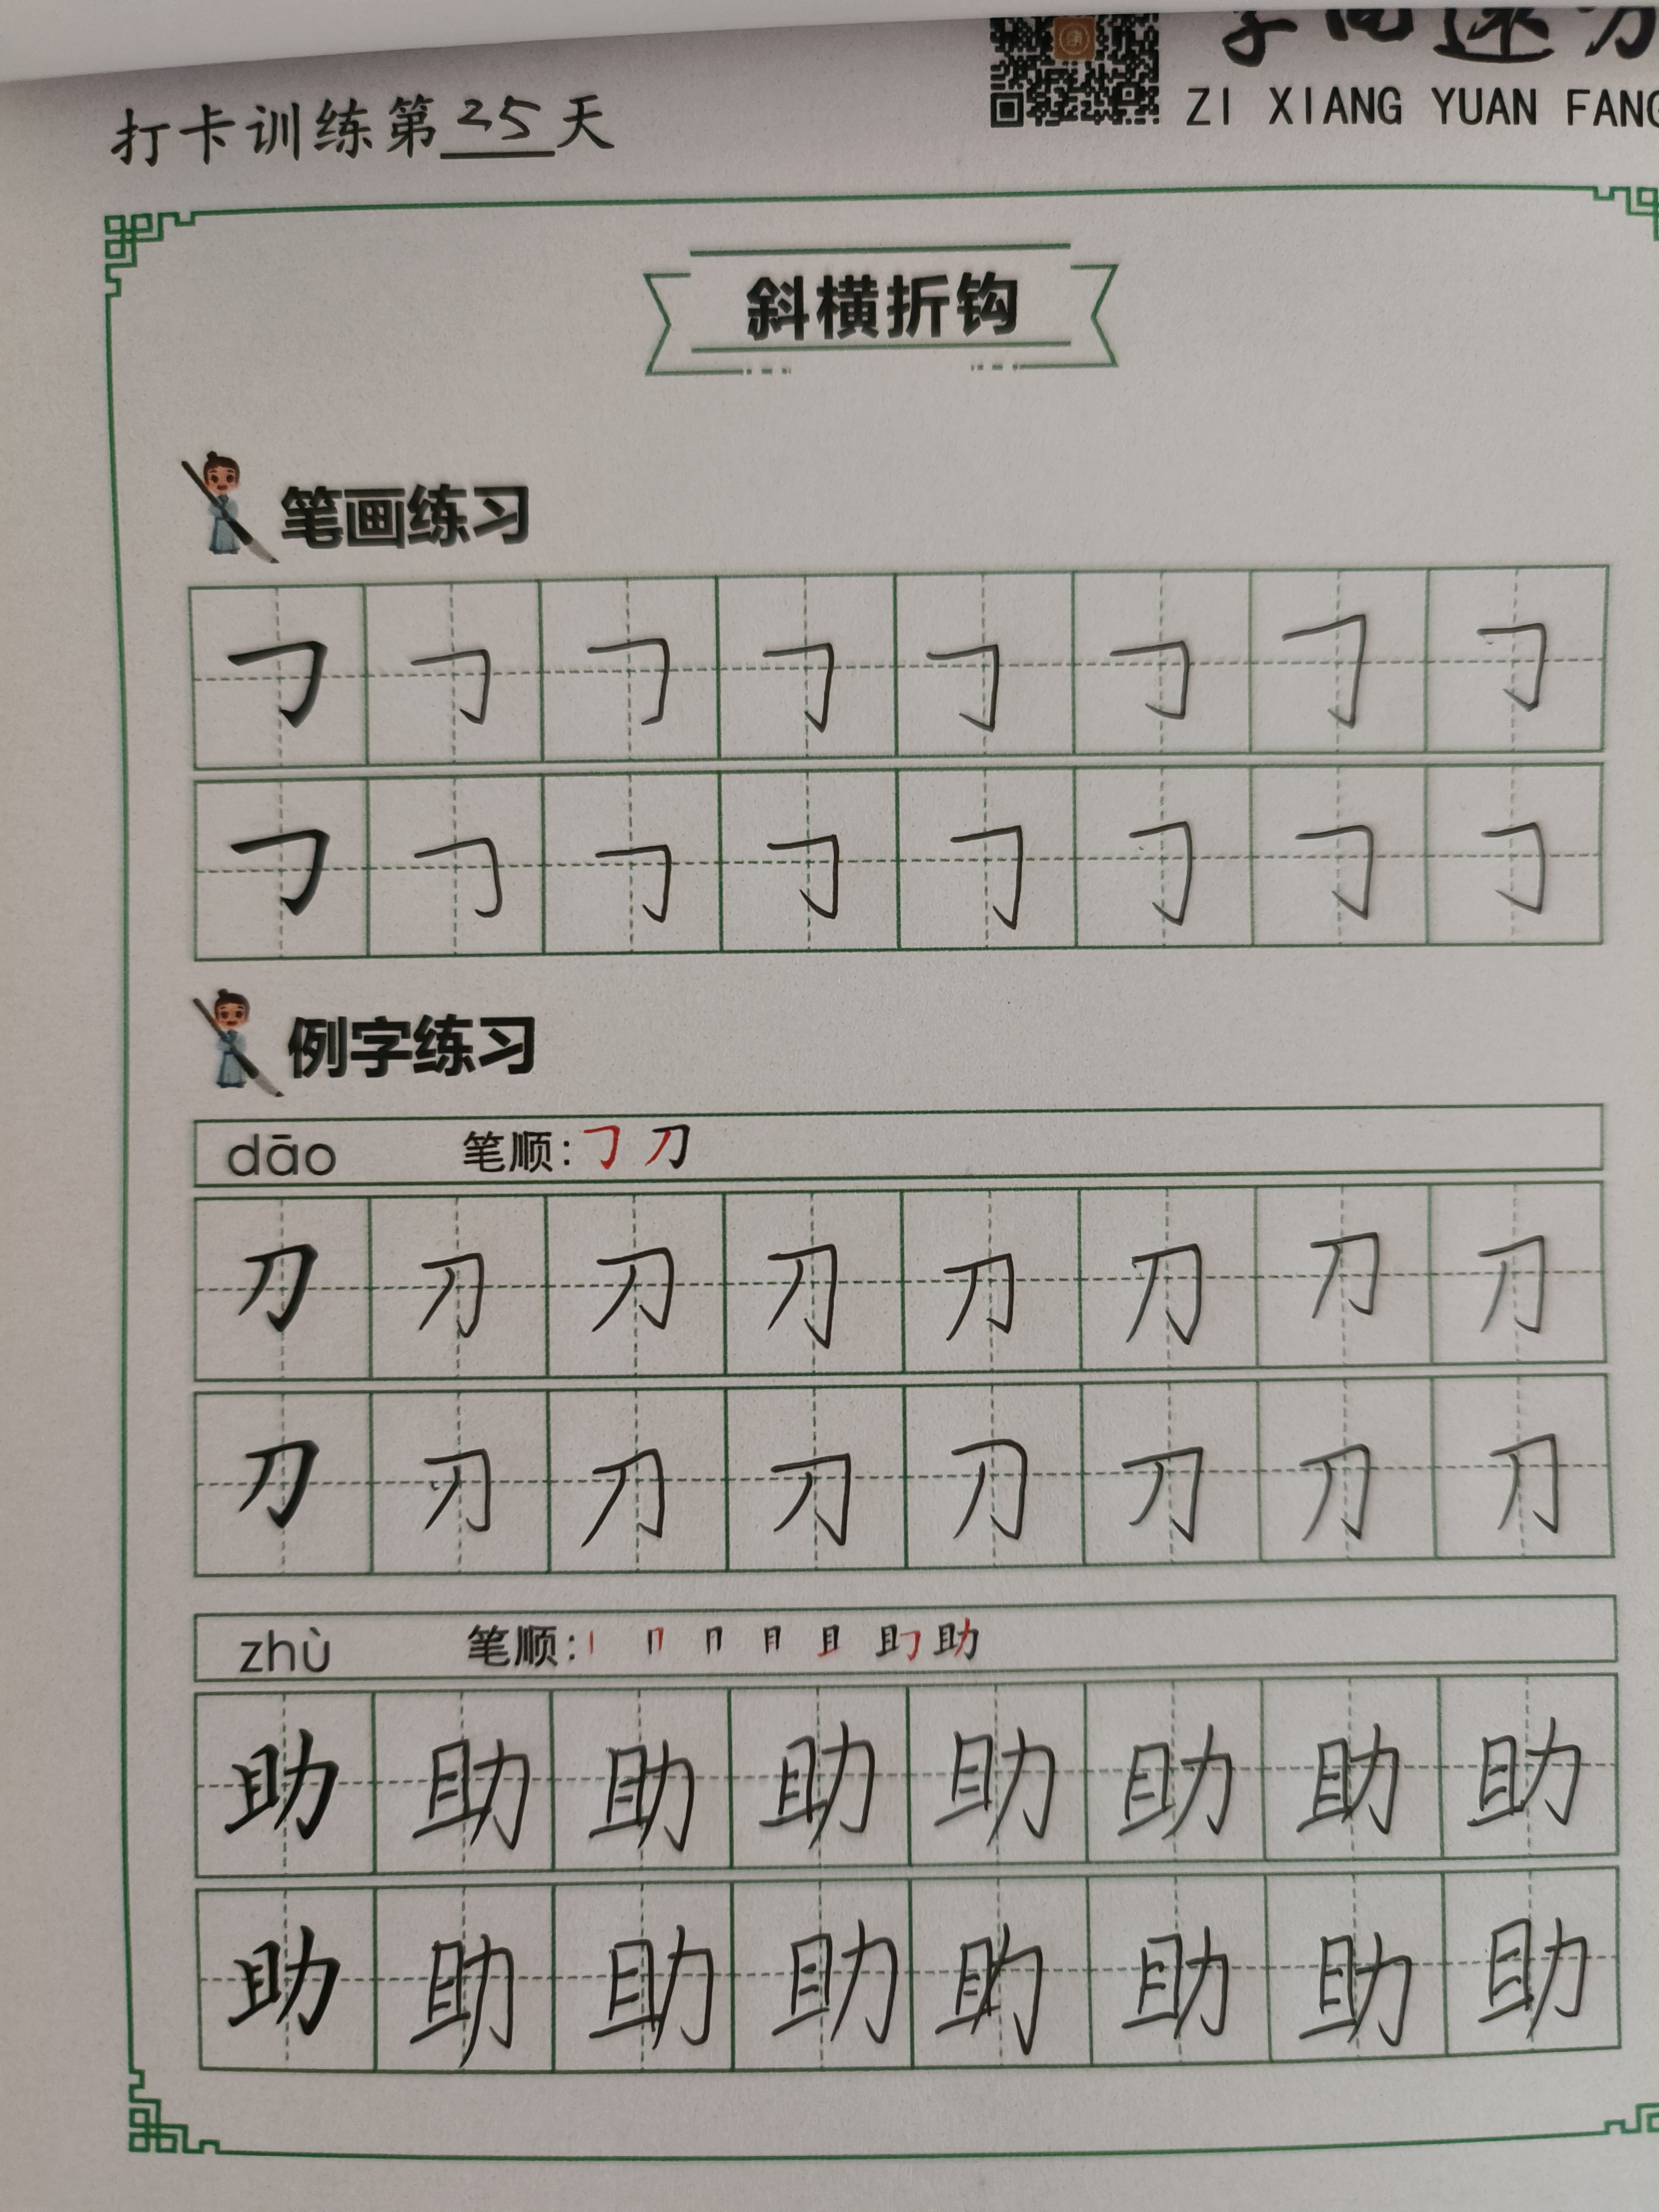 打卡训练第25天
ZI XIANG YUAN FANG
斜横折钩
笔画练习
㇆ ㇆ ㇆ ㇆ ㇆ ㇆ ㇆ ㇆
㇆ ㇆ ㇆ ㇆ ㇆ ㇆ ㇆ ㇆
例字练习
dāo 笔顺:㇆ 刀
刀 刀 刀 刀 刀 刀 刀 刀
刀 刀 刀 刀 刀 刀 刀 刀
zhù 笔顺: 丨 冂 冂 月 且 助
助 助 助 助 助 助 助 助
助 助 助 助 助 助 助 助